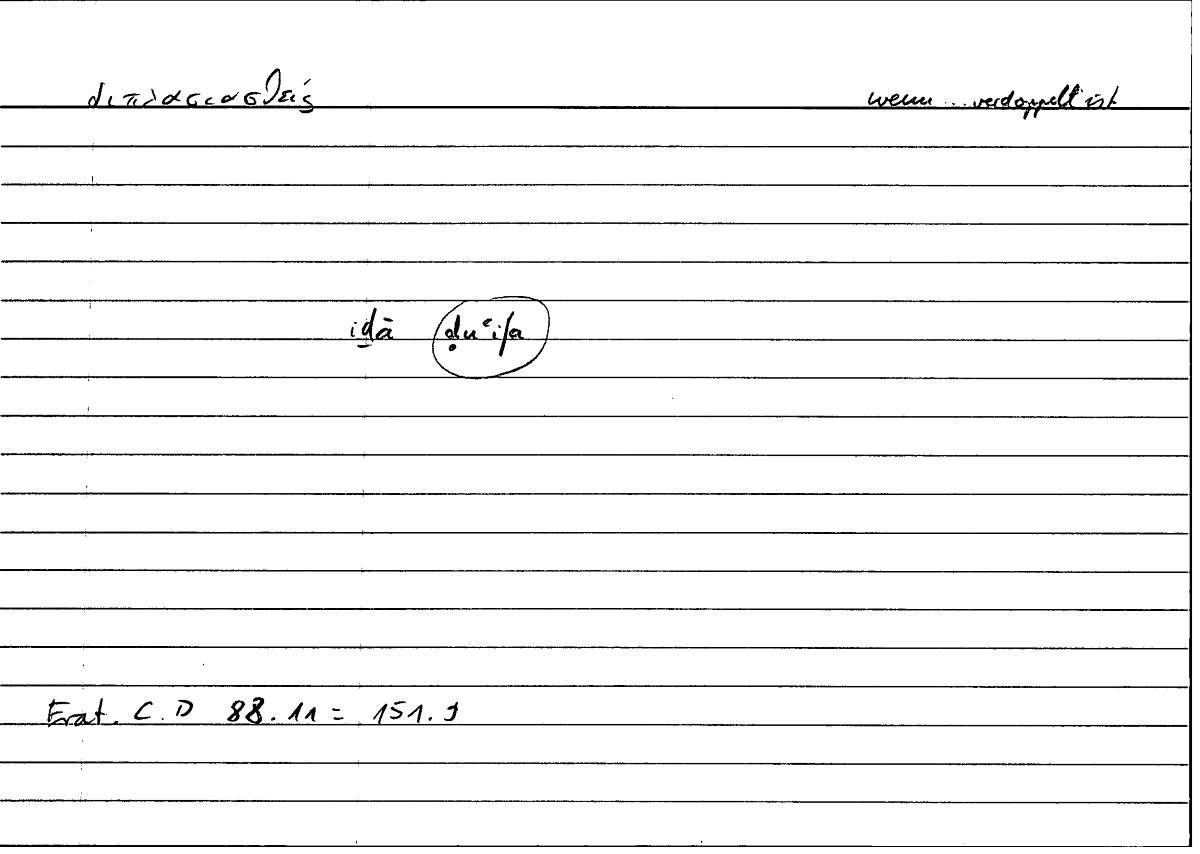 διπλασιασθείς wenn ... verdoppelt ist
iḏā ḍuʿifa
Erat. C.D 88.11 = 151.9